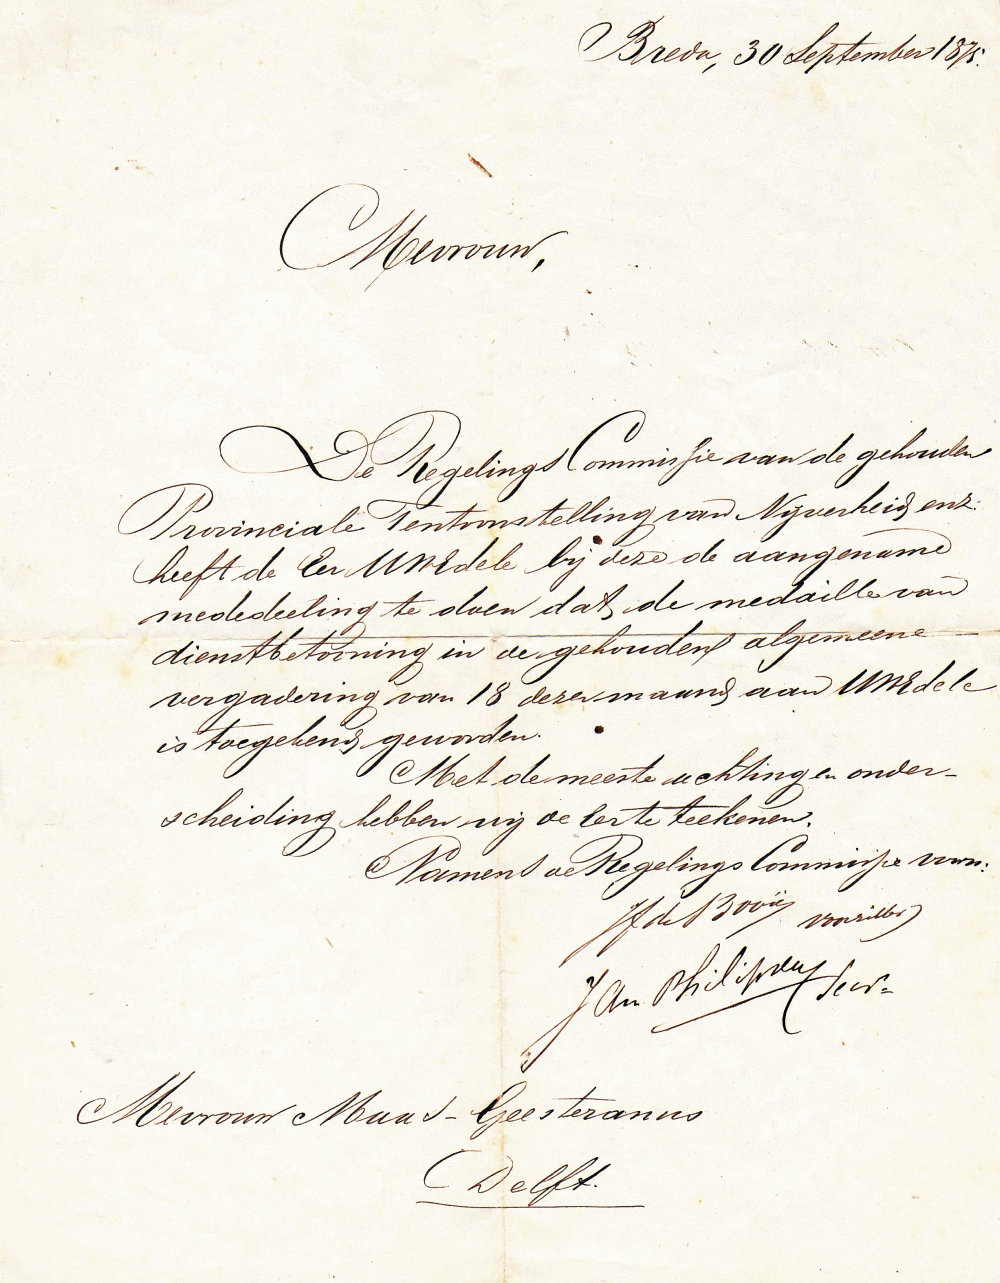 Breda, 30 September 1875.
Mevrouw,
De Regelings Commissie van de gehouden
Provinciale Tentoonstelling van Nijverheid enz.
heeft de Eer UWEdele bij deze de aangename
mededeeling te doen dat de medaille van
dienstbetooning in de gehouden algemeene
vergadering van 18 dezer maand aan UWEdele
is toegekend geworden.
Met de meeste achting en onder-
scheiding hebben wij de Eer te teekenen.
Namens de Regelings Commissie voorn:
voorzitter
Jan Philipsen Secr=
Mevrouw Maas- Geesteranus
Delft.